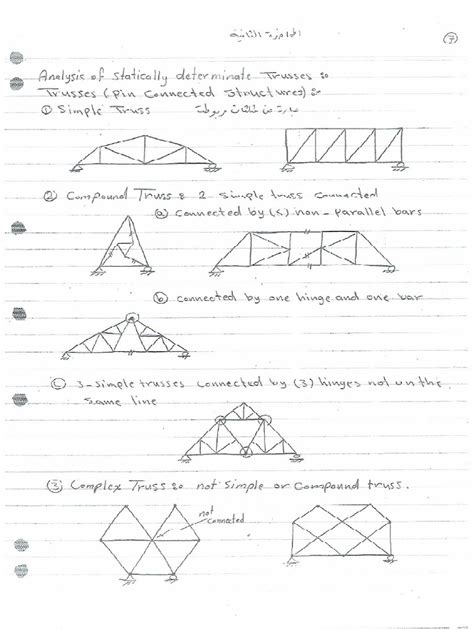 المحاضرة الثانية
7
Analysis of statically determinate Trusses :
Trusses (Pin Connected Structures) :
① Simple Truss عبارة عن مثلثات مربوطة
② Compound Truss : 2 Simple truss connected
ⓐ connected by (3) non-parallel bars
ⓑ connected by one hinge and one bar
ⓒ 3-simple trusses connected by (3) hinges not on the
same line
③ Complex Truss : not simple or compound truss.
not
connected